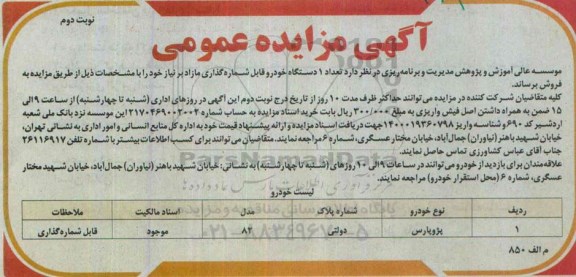 نوبت دوم
آگهی مزایده عمومی
موسسه عالی آموزش و پژوهش مدیریت و برنامه‌ریزی در نظر دارد تعداد ۱ دستگاه خودرو قابل شماره‌گذاری مازاد بر نیاز خود را با مشخصات ذیل از طریق مزایده به
فروش برساند.
کلیه متقاضیان شرکت کننده در مزایده می توانند حداکثر ظرف مدت ۱۰ روز از تاریخ درج نوبت دوم این آگهی در روزهای اداری (شنبه تا چهارشنبه) از ساعت ۹ الی
۱۵ ضمن به همراه داشتن اصل فیش واریزی به مبلغ ۳۰۰/۰۰۰ ریال بابت خرید اسناد مزایده به حساب شماره ۲۱۷۰۴۶۹۰۰۲۰۰۲ این موسسه نزد بانک ملی شعبه
اردشیر کد ۶۹۰ و شناسه واریز جهت دریافت اسناد مزایده و ارائه پیشنهاد قیمت خود به اداره کل منابع انسانی و امور اداری به نشانی تهران،
خیابان شهید باهنر (نیاوران) جمال‌آباد، خیابان مختار عسگری، شماره ۶ مراجعه نمایند. متقاضیان می توانند برای کسب اطلاعات بیشتر با شماره تلفن ۲۶۱۱۶۹۱۷
جناب آقای عباس کشاورزی تماس حاصل نمایند.
علاقه‌مندان برای بازدید از خودرو می توانند در ساعات ۹ الی ۱۰ روزهای (شنبه تا چهارشنبه) به نشانی: خیابان شهید باهنر (نیاوران) جمال‌آباد، خیابان شهید مختار
عسگری، شماره ۶ (محل استقرار خودرو) مراجعه نمایند.
لیست خودرو
ردیف نوع خودرو شماره پلاک مدل اسناد مالکیت ملاحظات
۱ پژو پارس دولتی ۸۲ موجود قابل شماره‌گذاری
م الف ۸۵۰
ParsNamadData
۰۲۱-۸۸۳۴۹۶۷۰-۵